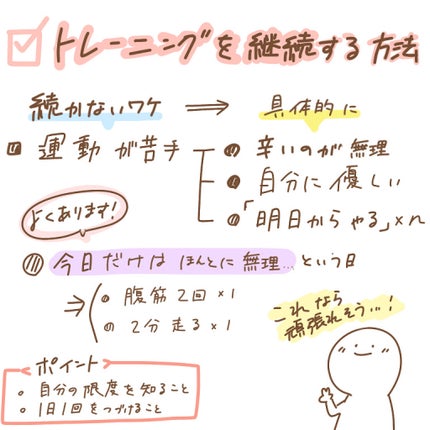 トレーニングを継続する方法
続かないワケ → 具体的に
運動が苦手
辛いのが無理
自分に優しい
「明日からやる」×n
よくあります!
今日だけはほんとに無理...という日
腹筋2回×1
2分走る×1
これなら
頑張れそう...!
ポイント
自分の限度を知ること
1日1回をつづけること